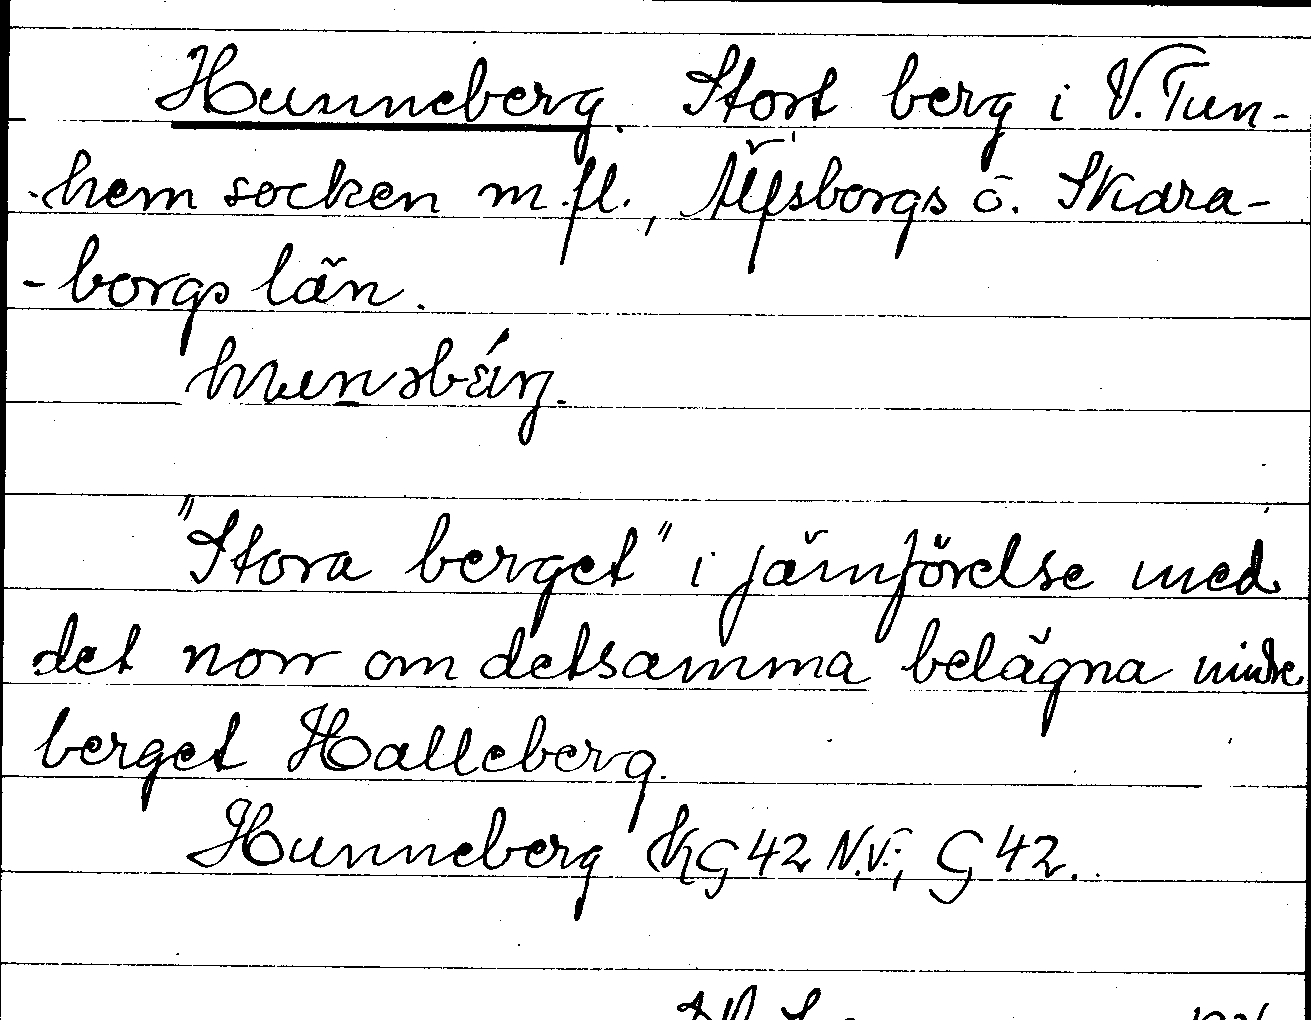 Hunneberg. Stort berg i V. Tun-
hem socken m.fl., Älfsborgs o. Skara-
-borgs län.

"Stora berget" i jämförelse med
det norr om detsamma belägna mindre
berget Halleberg.
Hunneberg KG 42 N.V.; G 42.